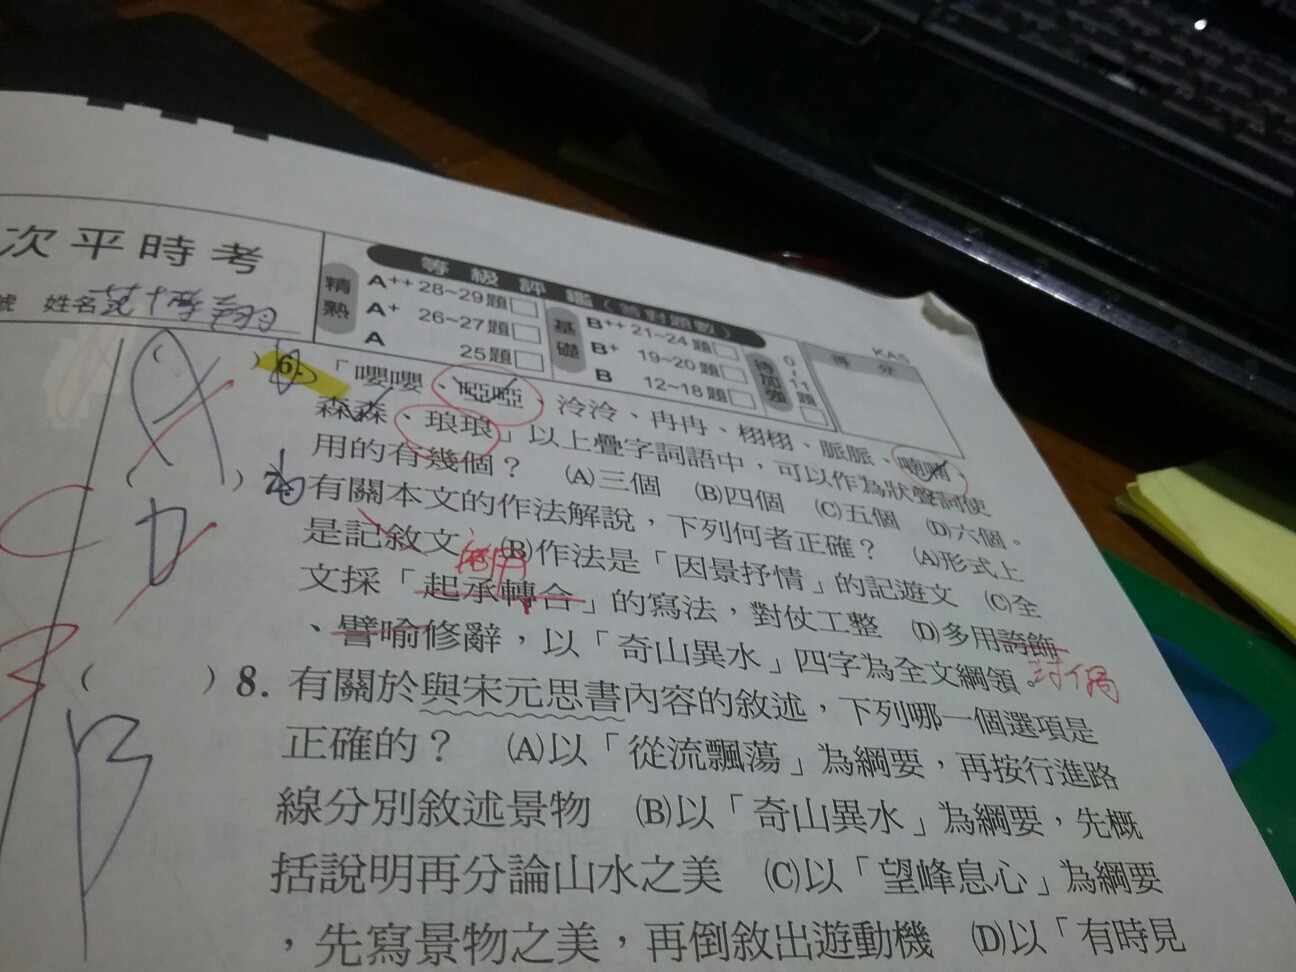 次平時考
號 姓名
等級評鑑(答對題數)
精熟
A++ 28~29題
A+ 26~27題
A 25題
基礎
B++ 21~24題
B+ 19~20題
B 12~18題
待加強
0~11題
KA5
得分
( ) 6. 「嚶嚶、啞啞、泠泠、冉冉、栩栩、脈脈、
森森、琅琅」以上疊字詞語中,可以作為狀聲詞使
用的有幾個? (A)三個 (B)四個 (C)五個 (D)六個。
( ) 有關本文的作法解說,下列何者正確? (A)形式上
是記敘文 (B)作法是「因景抒情」的記遊文 (C)全
文採「起承轉合」的寫法,對仗工整 (D)多用誇飾
、譬喻修辭,以「奇山異水」四字為全文綱領。
對偶
D
( ) 8. 有關於與宋元思書內容的敘述,下列哪一個選項是
正確的? (A)以「從流飄蕩」為綱要,再按行進路
線分別敘述景物 (B)以「奇山異水」為綱要,先概
括說明再分論山水之美 (C)以「望峰息心」為綱要
,先寫景物之美,再倒敘出遊動機 (D)以「有時見
B